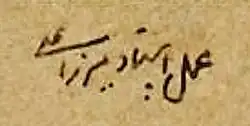 عمل استاد میرزا علی